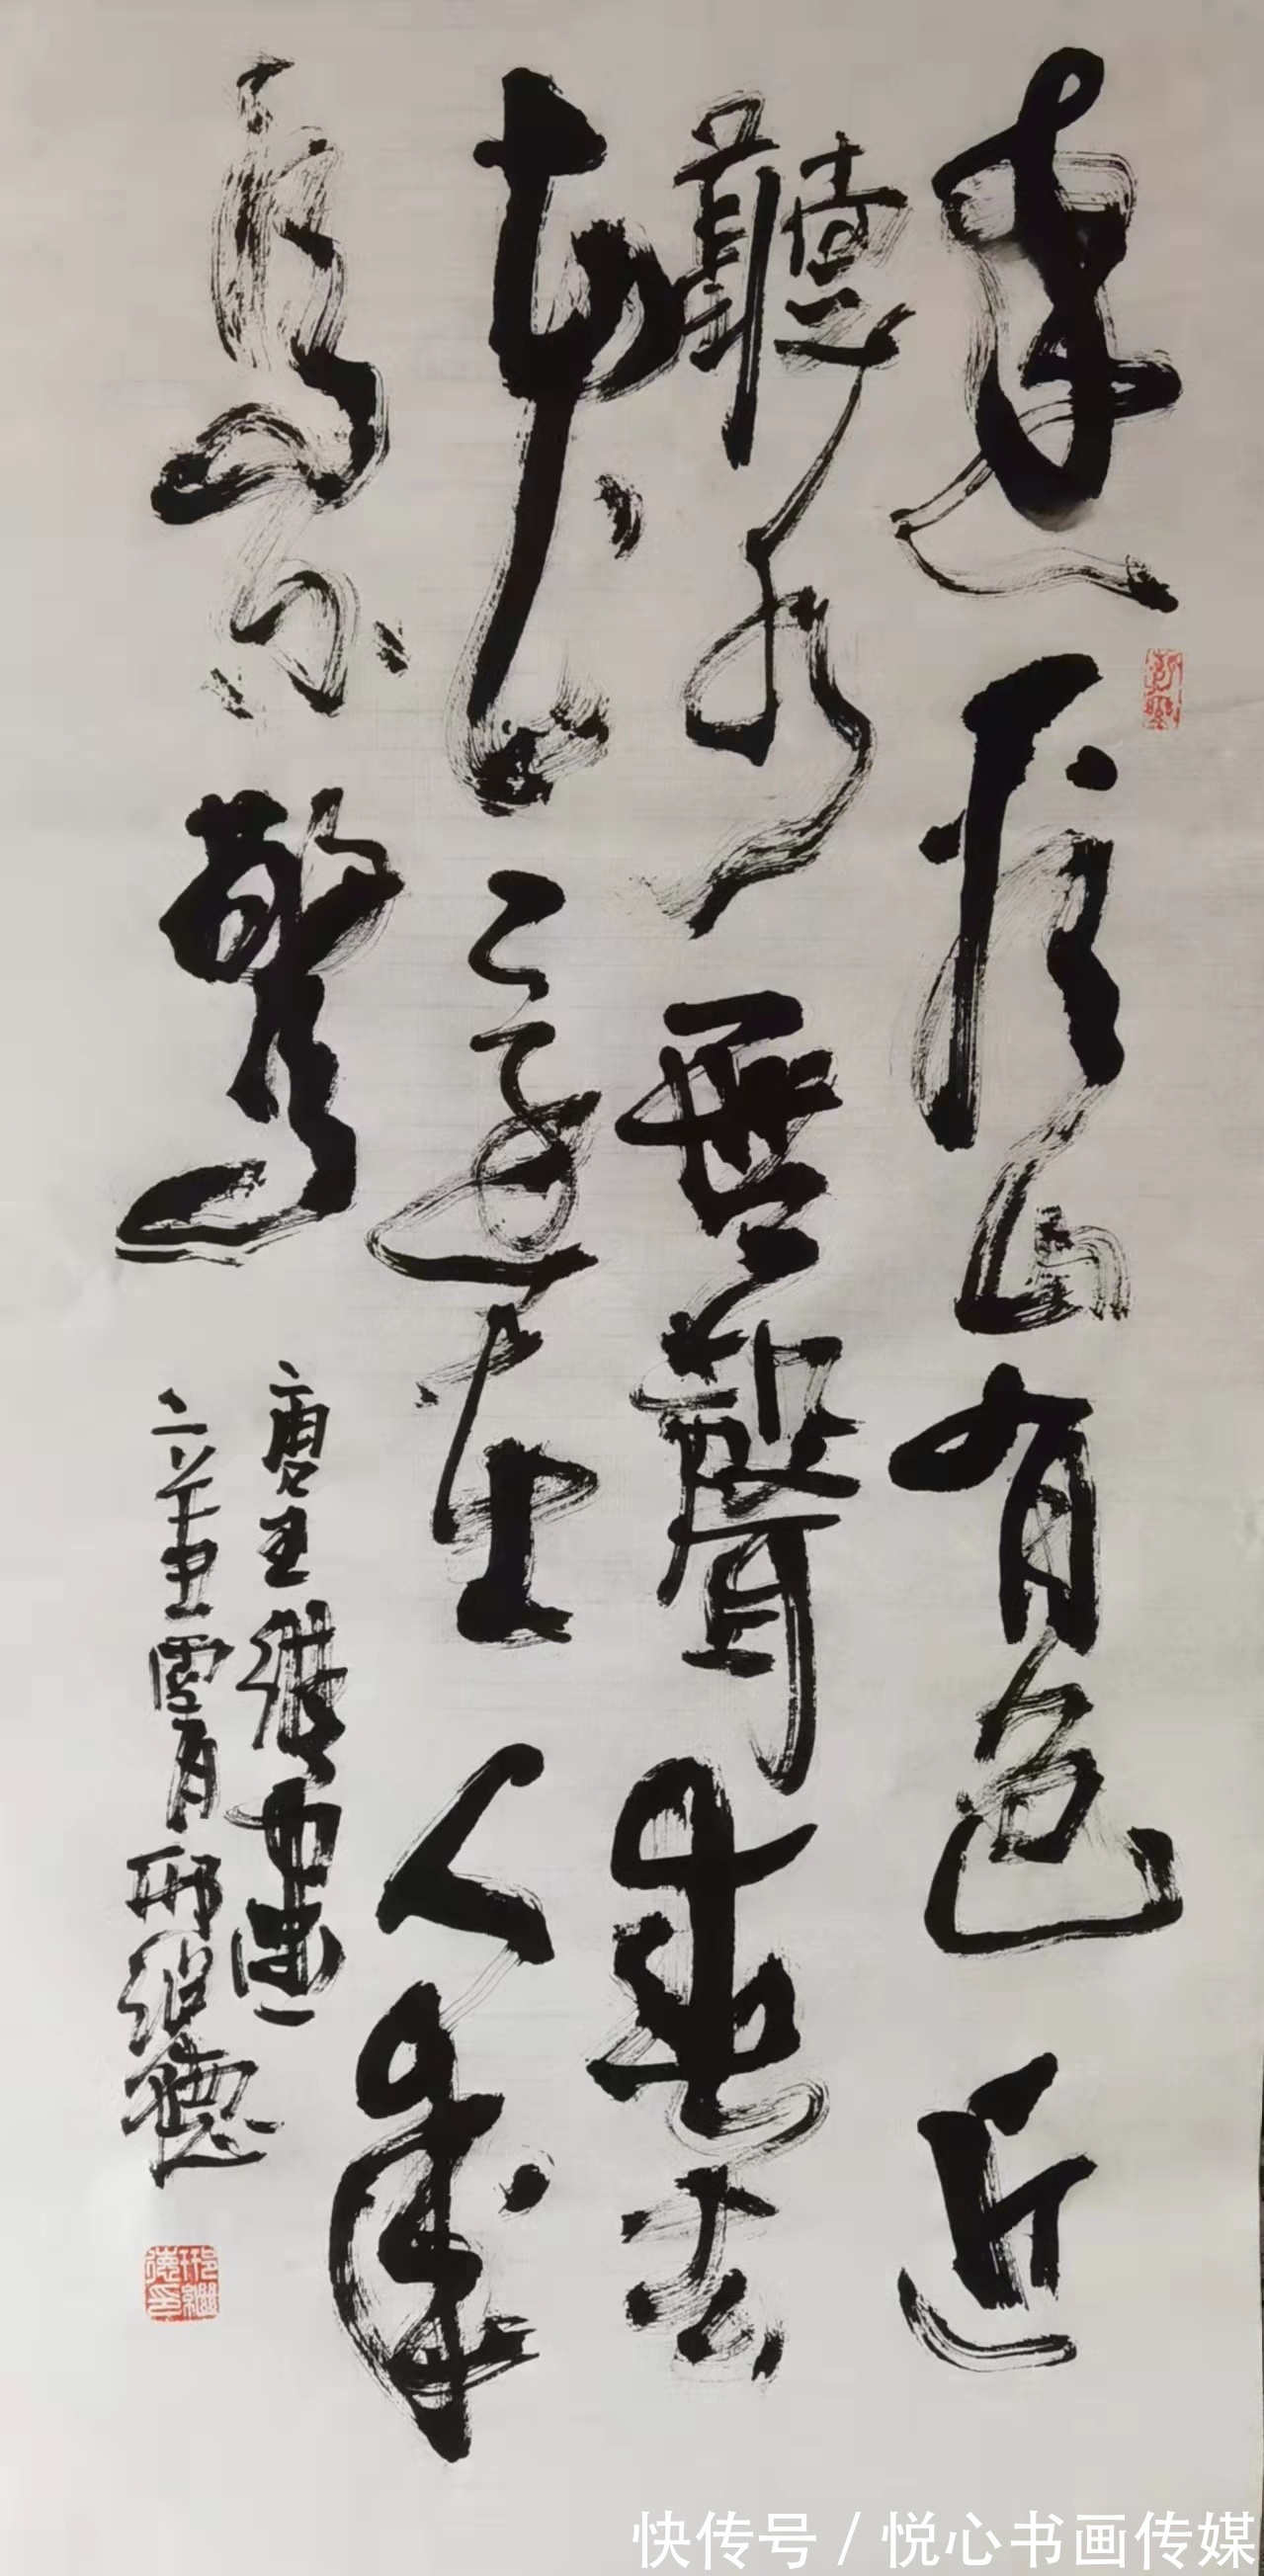 遠看山有色近
聽水無聲春去
花還在人來
鳥不驚
唐王維畫
辛丑月邢继德
邢繼德印
快传号 / 悦心书画传媒